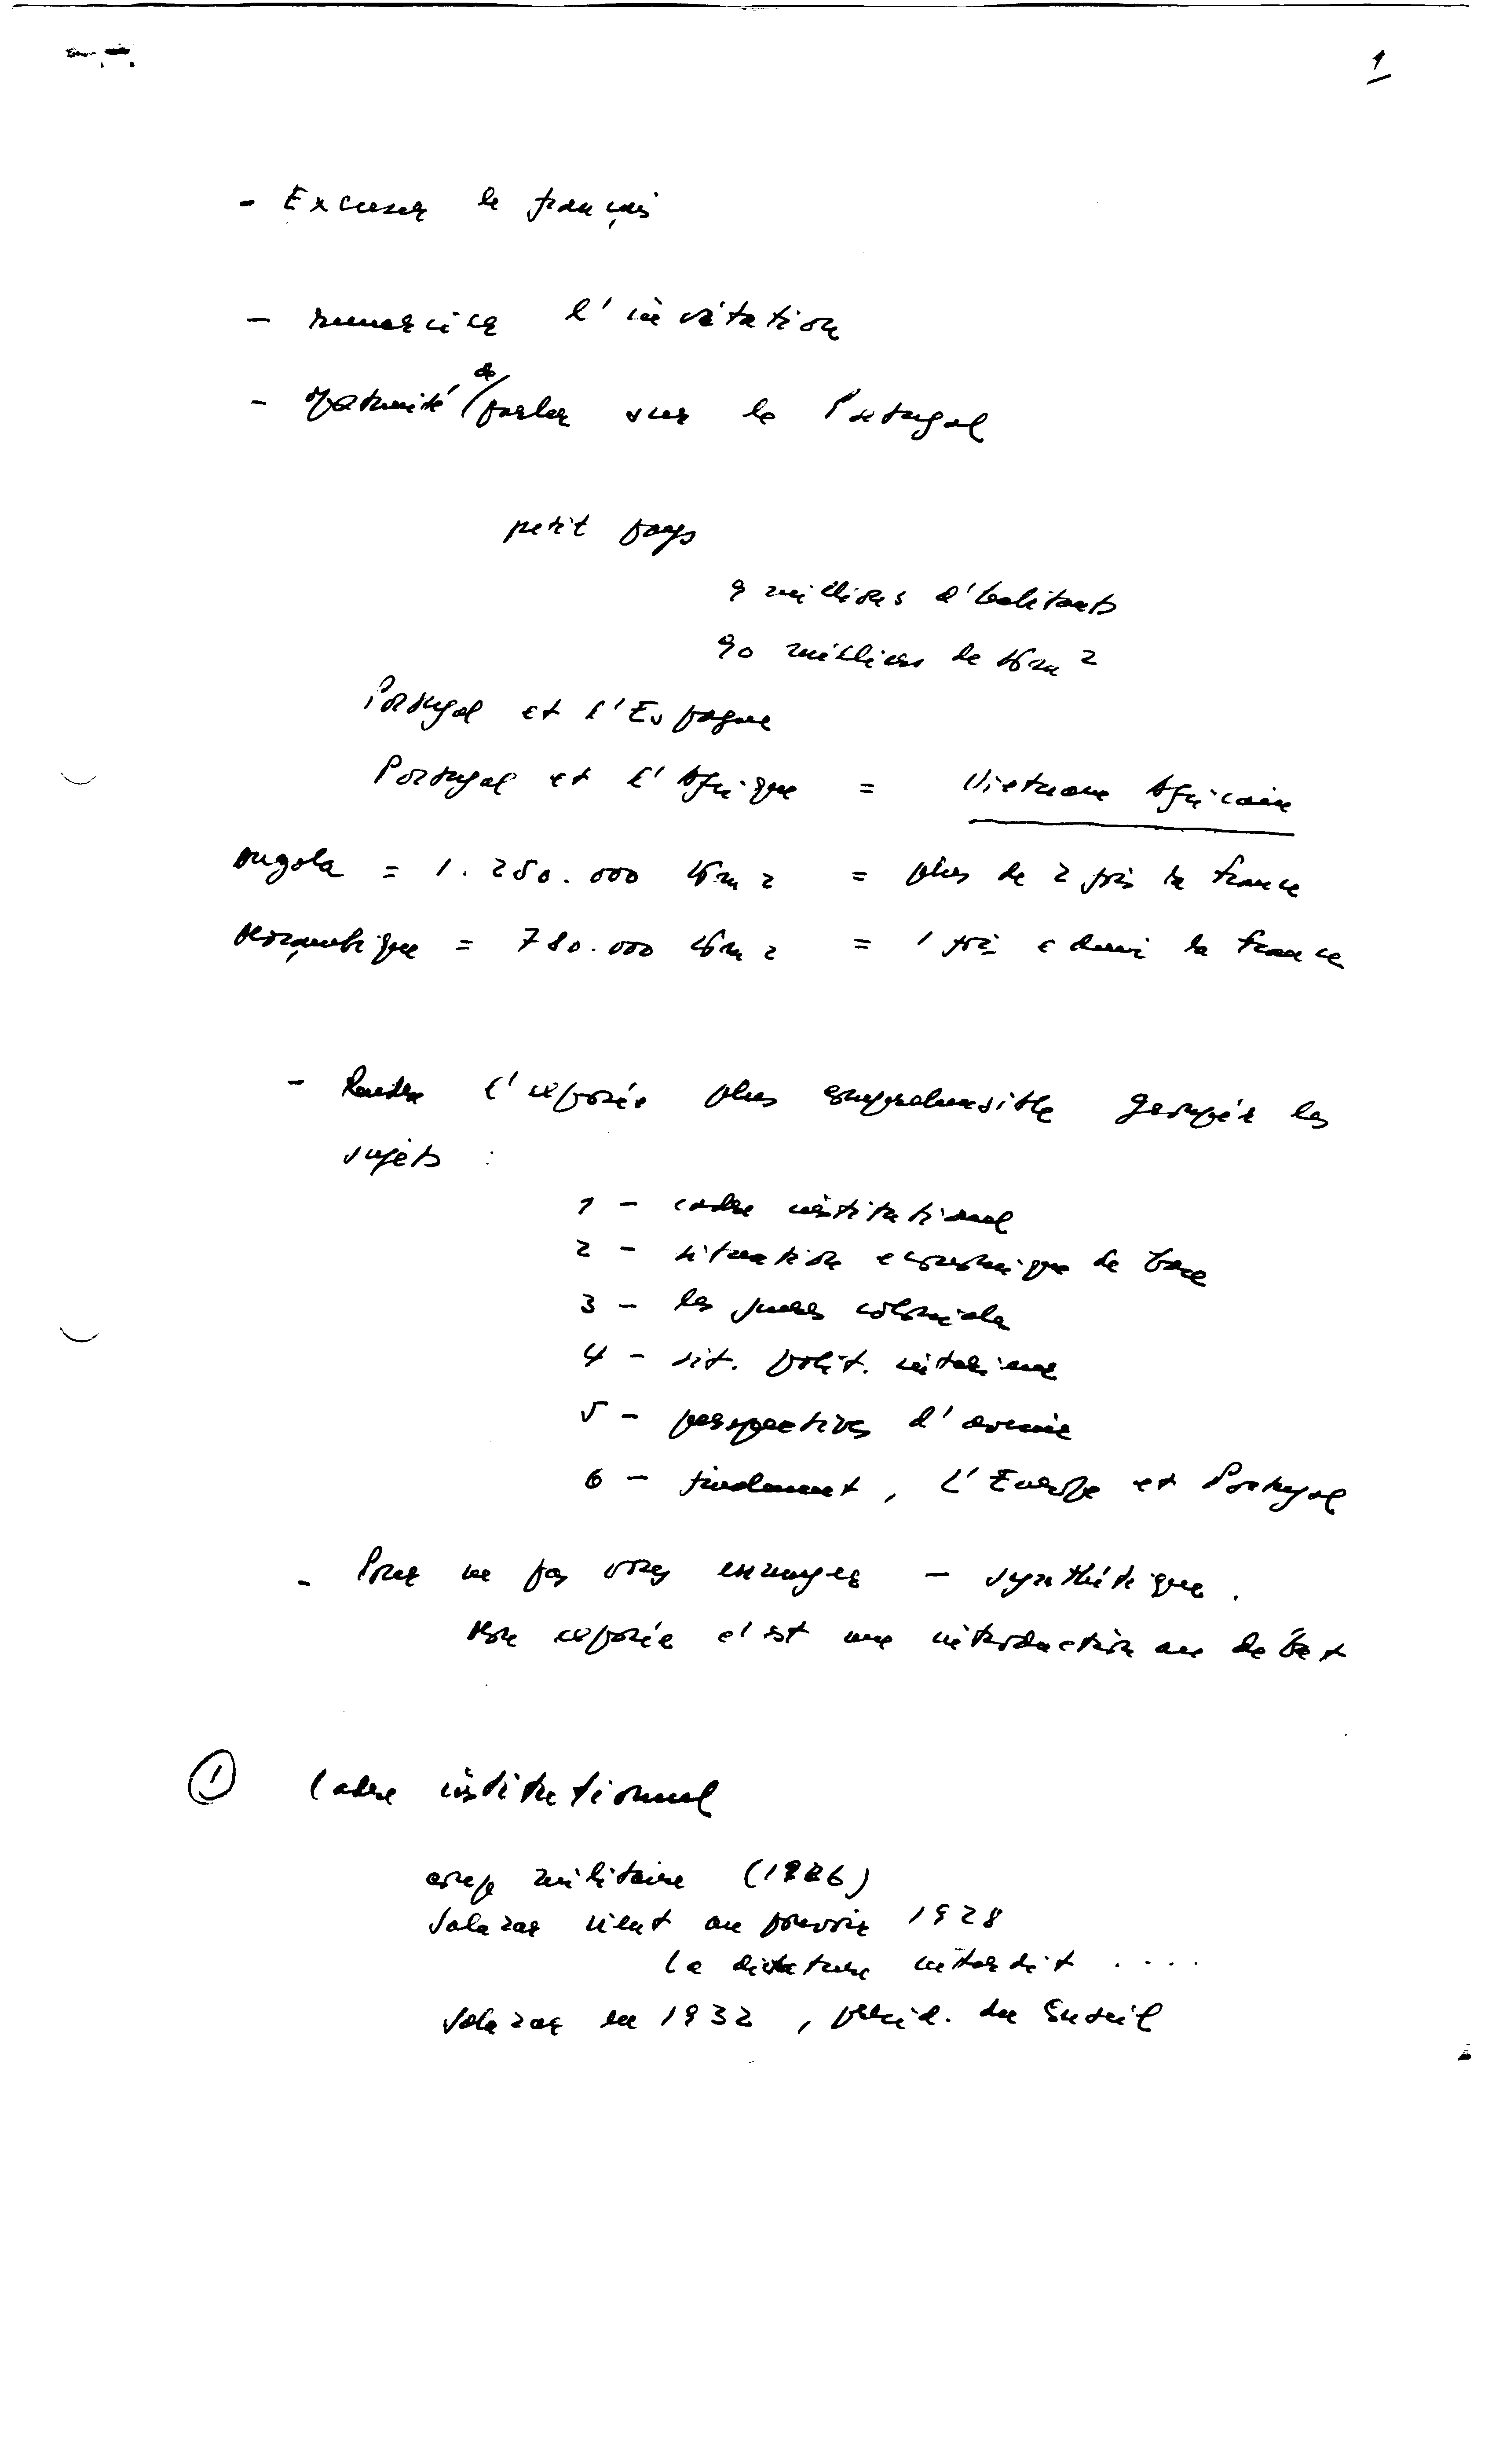 1
- Excuser le français
- remercier l'invitation
- oportunité de parler sur le Portugal
petit pays
9 millions d'habitants
90 milliers de Km2
Portugal et l'Espagne
Portugal et l'Afrique = Vietnam Africain
Angola = 1.250.000 Km2 = plus de 2 fois la France
Moçambique = 780.000 Km2 = 1 foi e demi la France
- Rendre l'exposée plus comprehensible groupér les
sujets :
1 - cadre institutionel
2 - situation economique de base
3 - les guerres coloniales
4 - sit. polit. intérieure
5 - perspectives d'avenir
6 - finalement, l'Europe et Portugal
- Pour ne pas vous ennuyer - synthétique.
Mon exposée c'est une introduction au débat
1 Cadre institutionnel
coup militaire (1926)
Salazar vient au pouvoir 1928
la dictature interdit ....
Salazar en 1932, présid. du Conseil